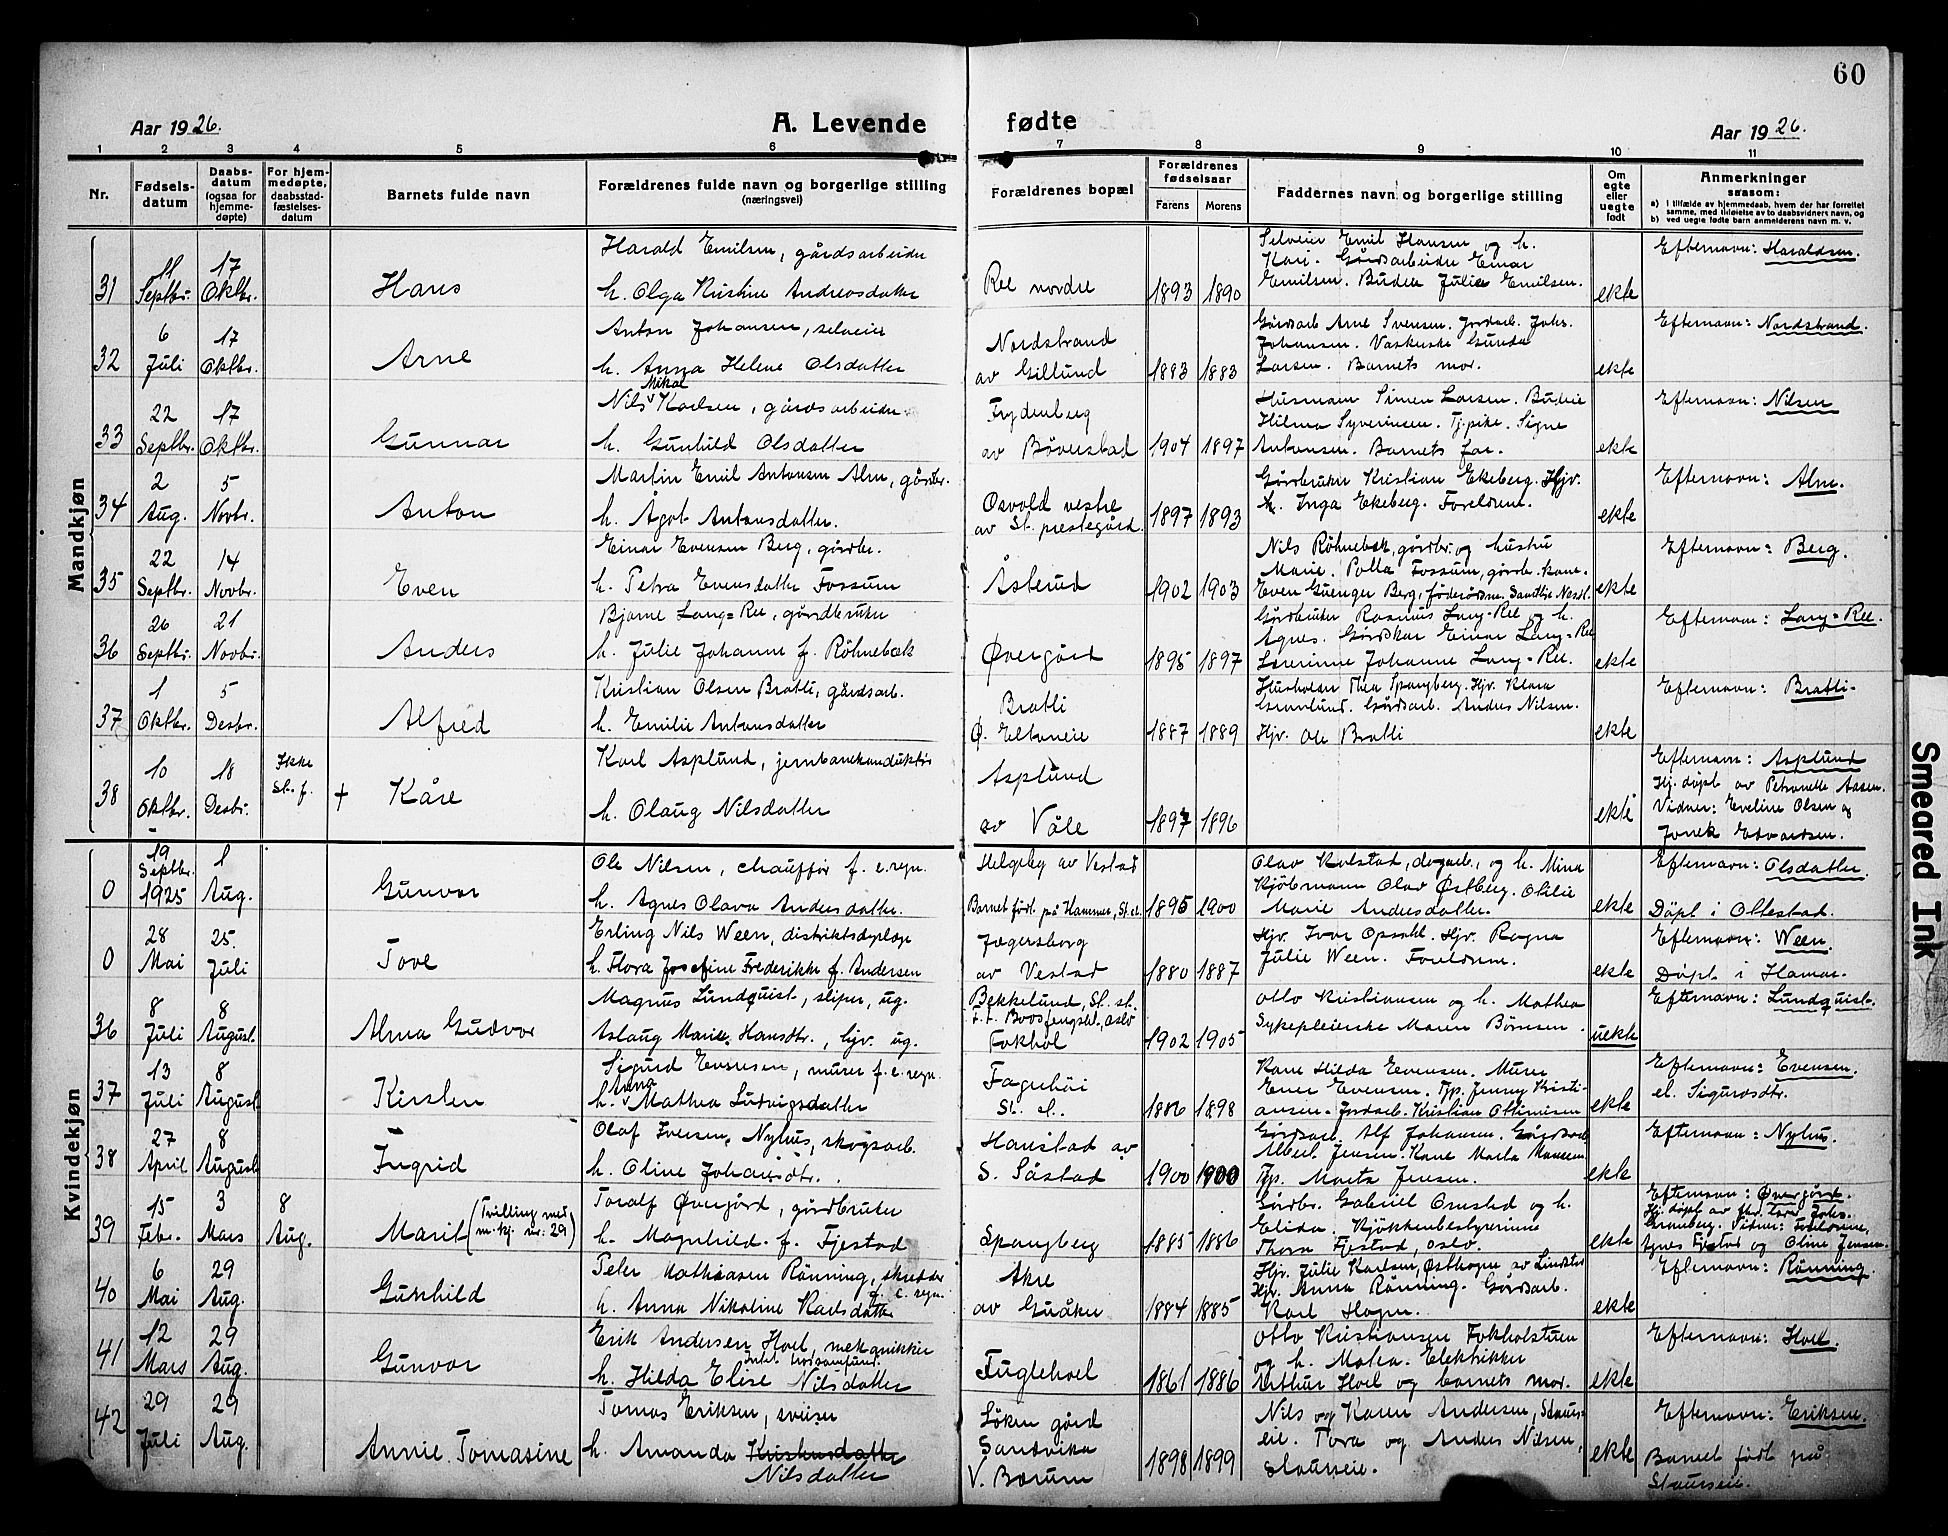 60
Aar 1926.
A. Levende fødte
Aar 1926.
1 2 3 4 5 6 7 8 9 10 11
Nr.
Fødsels-
datum
Daabs-
datum
(ogsaa for
hjemme-
døpte)
For hjem-
medøpte,
daabsstad-
fæstelses-
datum
Barnets fulde navn
Forældrenes fulde navn og borgerlige stilling
(næringsvei)
Forældrenes bopæl
Forældrenes
fødselsaar
Farens Morens
Faddernes navn og borgerlige stilling
Om
egte
eller
uegte
født
Anmerkninger
saasom:
a) i tilfælde av hjemmedaab, hvem der har forrettet
samme, med tilføielse av to daabsvidners navn, og
b) ved uegte fødte barn anmelderens navn m. v.
Mandkjøn
31
11
Septbr.
17
Oktbr.
Hans
Harald Emilsen, gårdsarbeider
h. Olga Kristine Andreasdatter
Ree nordre
1893 1890
Selveier Emil Hansen og h.
Kari. Gårdsarbeider Einar
Emilsen. Budeie Julie Emilsen.
ekte
Efternavn: Haraldsen.
32
6
Juli
17
Oktbr.
Arne
Anton Johansen, selveier
h. Anna Helene Olsdatter
Nordstrand
av Gillund
1883 1883
Gårdsarb. Arne Svensen. Jordarb. Johs.
Johansen. Vaskerske Gunda
Larsen. Barnets mor.
ekte
Efternavn: Nordstrand.
33
22
Septbr.
17
Oktbr.
Gunnar
Mikal
Nils Karlsen, gårdsarbeider
h. Gunhild Olsdatter
Frydenberg
av Bøverstad
1904 1897
Husmann Simen Larsen. Budeie
Hilma Syversen. Tj.pike. Signe
Antonsen. Barnets far.
ekte
Efternavn: Nilsen
34
2
Aug.
5
Novbr.
Anton
Martin Emil Antonsen Alm, gårdbr.
h. Ågot Antonsdatter.
Osvold vestre
av St. prestegård.
1897 1893
Gårdbruker Kristian Ekeberg. Hjv.
h. Inga Ekeberg. Foreldrene.
ekte
Efternavn: Alm.
35
22
Septbr.
14
Novbr.
Even
Einar Evensen Berg, gårdbr.
h. Petra Evensdatter Fossum
Åsterud
1902 1903
Nils Røhnebæk, gårdbr. og hustru
Marie. Polla Fossum, gårdbr. kone.
ekte
Efternavn: Berg.
36
26
Septbr.
21
Novbr.
Anders
Bjarne Lang-Ree, gårdbruker
h. Julie Johanne f. Røhnebæk
Øvergård
1895 1897
Gårdbruker Rasmus Lang-Ree og h.
Agnes. Gårdskar Einar Lang-Ree
Lærerinne Johanne Lang-Ree.
ekte
Efternavn: Lang-Ree.
37
1
Oktbr.
5
Desbr.
Alfred
Kristian Olsen Bratli, gårdsarb.
h. Emilie Antonsdatter
Bratli
Ø. Eltoneie
1887 1889
Husholder. Thea Spangberg. Hjv. Klara
Grønlund. Gårdsarb. Anders Nilsen.
Hjv. Ole Bratli
ekte
Efternavn: Bratli.
38
10
Oktbr.
18
Desbr.
Ikke
St. f.
+ Kåre
Karl Asplund, jernbanekonduktør
h. Olaug Nilsdatter
Asplund
av Våle
1897 1896
ekte
Efternavn: Asplund
Hj. døpt av Petronelle Aasen.
Vidner: Eveline Olsen og
Jonek Edvardsen.
Kvindekjøn
0
19
Septbr.
1925
1
Aug.
Gunvor
Ole Nilsen, chauffør f. e. regn.
h. Agnes Olava Andersdatter.
Helgeby av Vestad
Barnet født på Hammer, St. el.
1895 1900
Olav Kulstad, dagarb., og h. Mina
Kjøbmann Olav Østberg. Otilie
Marie Andersdatter.
ekte
Efternavn: Olsdatter.
Døpt i Ottestad.
0
28
Mai
25.
Juli
Tove
Erling Nils Ween, distriktsdyrlæge
h. Flora Josefine Frederikke f. Andersen
Jægersborg
av Vestad
1880 1887
Hjv. Ivar Opsahl. Hjv. Ragna
Julie Ween. Foreldrene.
ekte
Efternavn: Ween.
Døpt i Hamar.
36
8
Juli
8
August.
Alma Gudvor
Magnus Lundquist, sliper, ug.
Aslaug Marie Hansdtr., hjv. ug.
Bekkelund, St. st.
f. t. Bootsfengslet, Oslo
Fokhol
1902 1905
Otto Kristiansen og h. Mathea
Sykepleierske Maren Børresen
uekte
Efternavn: Lundquist.
37
13
Juli
8
August.
Kirsten
Sigurd Evensen, murer f. e. regn.
Anna
h. Mathea Ludvigsdatter
Fagerhøi
St. el.
1886 1898
Kone Hilda Evensen. Murer
Einer Evensen. Tjp. Jenny Kristi-
ansen. Jordarb. Kristian Ottinisen
ekte
Efternavn: Evensen.
el. Sigurdsdtr.
38
27
April
8
August.
Ingrid
Olaf Iversen Nyhus, skogsarb.
h. Oline Johansdtr.
Honstad av
S. Såstad
1900 1900
Gårdsarb. Alf Johansen. Gårdsarb.
Albert Jensen. Kone Marta Hansen
Tjp. Marta Jensen.
ekte
Efternavn: Nyhus.
39
15
Febr.
3
Mars
8
Aug.
Marit (Tvilling med
m. kj. nr. 29)
Toralf Øvergård, gårdbruker
h. Magnhild f. Fjestad
Spangberg
1885 1886
Gårdbr. Gabriel Omsted og h.
Elida. Kjøkkenbestyrerinne
Thora Fjestad, Oslo.
ekte
Efternavn: Øvergård.
Agnes Fjestad og Oline Jensen.
40
6
Mai
29
Aug.
Gunhild
Peter Mathiasen Rønning, skredder
f. e. regn.
h. Anna Nikoline Karlsdatter
Åkre
av Guåker
1884 1885
Hjv. Julie Karlsen, Østhagen av Lindstad
Hjv. Anna Rønning. Gårdsarb.
Karl Hagen.
ekte
Efternavn: Rønning.
41
12
Mars
29
Aug.
Gunvor
Erik Andersen Hoel, mekanikker
h. Hilda Elise Nilsdatter
Fuglehoel
1861 1886
Otto Kristiansen Fokholstuen
og h. Matea. Elektrikker
Arthur Hoel og barnets mor.
ekte
Efternavn: Hoel.
42
29
Juli
29
Aug.
Annie Tomasine
Tomas Eriksen, sveiser
h. Amanda Kristiansdatter
Nilsdatter
Løken gård
Sandvika
V. Bærum
1898 1899
Nils og Karen Andersen, Staurs-
eie. Tora og Anders Nilsen,
Staurseie.
ekte
Efternavn: Eriksen.
Barnet født på
Staurseie.
Smeared Ink